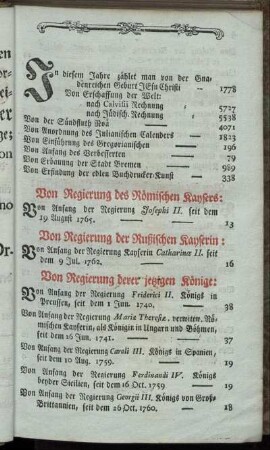 In diesem Jahre zählet man von der Gna-
denreichen Geburt JEsu Christi — 1778
Von Erschaffung der Welt:
nach Calvisii Rechnung — 5727
nach Jüdisch. Rechnung — 5538
Von der Sündfluth Noä — 4071
Von Anordnung des Julianischen Calenders — 1823
Von Einführung des Gregorianischen — 196
Von Anfang des Verbesserten — 79
Von Erbauung der Stadt Bremen — 989
Von Erfindung der edlen Buchdrucker-Kunst — 338
Von Regierung des Römischen Kaysers:
Von Anfang der Regierung Josephi II. seit dem
19 August 1765. — 13
Von Regierung der Rußischen Kayserin:
Von Anfang der Regierung Kayserin Catharinæ II. seit
dem 9 Jul. 1762. — 16
Von Regierung derer jetzgen Könige:
Von Anfang der Regierung Friderici II. Königs in
Preussen, seit dem 1 Jun. 1740. — 38
Von Anfang der Regierung Mariæ Theresiæ, verwitw. Rö-
mischen Kayserin, als Königin in Ungarn und Böhmen,
seit dem 26 Jun. 1741. — 37
Von Anfang der Regierung Caroli III. Königs in Spanien,
seit dem 10 Aug. 1759. — 19
Von Anfang der Regierung Ferdinandi IV. Königs
beyder Sicilien, seit dem 16 Oct. 1759 — 19
Von Anfang der Regierung Georgii III. Königs von Groß-
Brittannien, seit dem 26 Oct. 1760. — 18